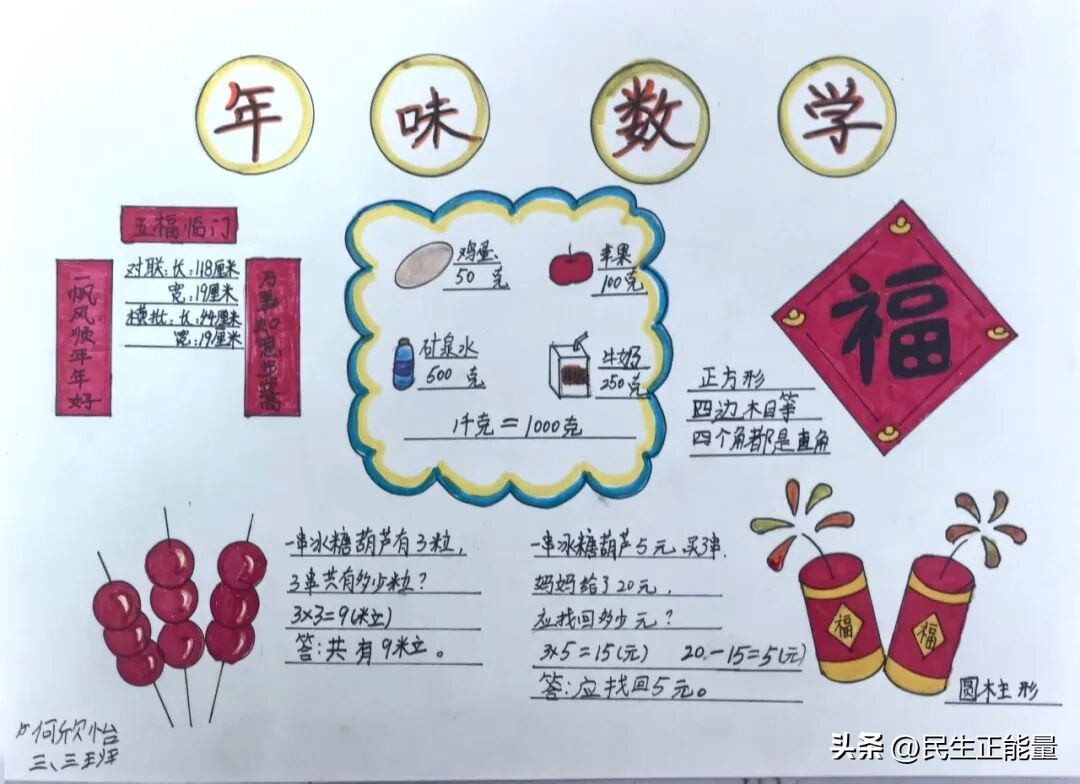 年味数学
五福临门
一帆风顺年年好
万事如意年年高
对联:长:118厘米
宽:19厘米
横批:长:94厘米
宽:19厘米
鸡蛋
50 克
苹果
100克
矿泉水
500 克
牛奶
250克
1千克=1000克
福
正方形
四边相等
四个角都是直角
一串冰糖葫芦有3粒,
3串共有多少粒?
3×3=9(粒)
答:共有9粒。
一串冰糖葫芦5元,买3串,
妈妈给了20元,
应找回多少元?
3×5=15(元) 20-15=5(元)
答:应找回5元。
福
福
圆柱形
何欣怡
三、三班
头条 @民生正能量